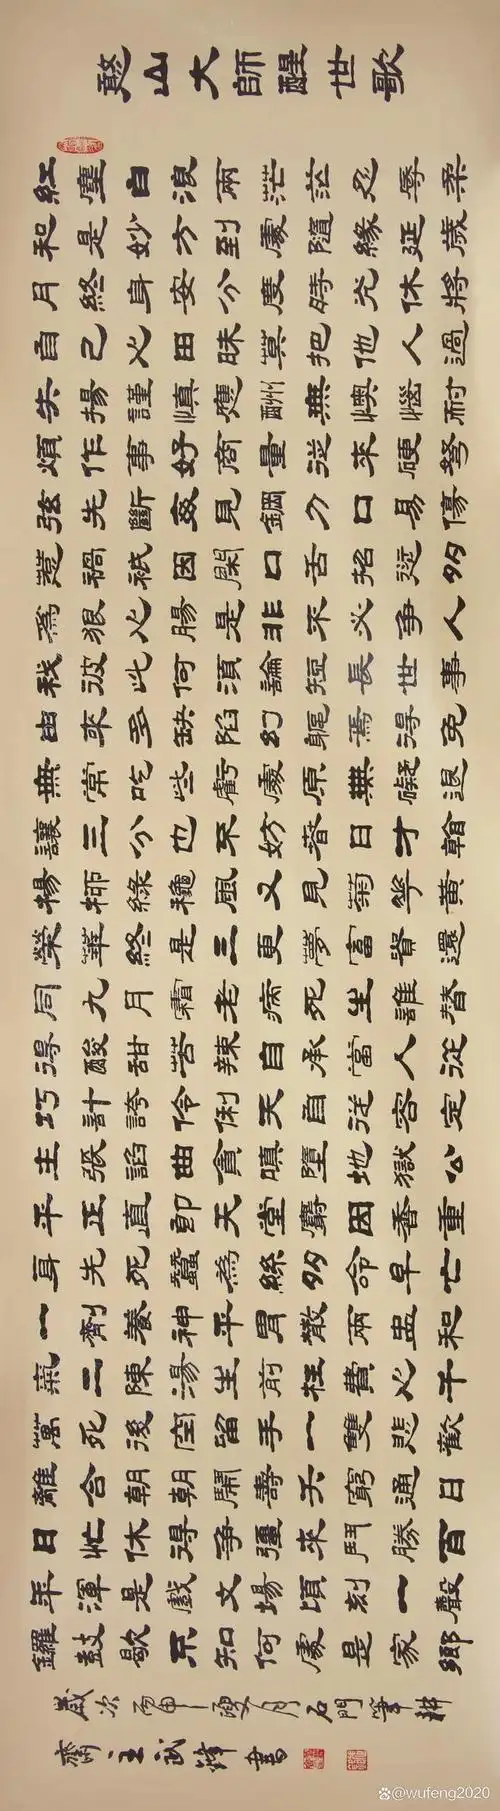 憨山大師醒世歌
紅塵白浪兩茫茫忍辱柔
和是妙方到處隨緣延歲
月終身安分度時光休將
自己心田昧莫把他人過
失揚謹慎應酬無懊惱耐
煩作事好商量從來硬弩
弦先斷每見鋼刀口易傷
惹禍祇因閑口舌招愆多
為狠心腸是非不必爭人
我彼此何須論短長世事
由來多缺陷幻軀焉得免
無常吃些虧處原無礙退
讓三分也不妨春日才看
楊柳綠穐風又見菊華黃
榮華終是三更夢富貴還
同九月霜老病死生誰替
得酸甜苦辣自承當人從
巧計誇伶俐天自從容定
主張諂曲貪瞋墮地獄公
平正直即天堂麝因香重
身先死蠶為絲多命早亡
一劑養神平胃散兩盅和
氣二陳湯生前枉費心千
萬死後空留手一雙悲歡
離合朝朝鬧壽夭窮通日
日忙休得爭彊來鬥勝百
年渾是戲文場頃刻一聲
鑼鼓歇不知何處是家鄉
歲次丙申月石門筆耕
齋王武鋒書
@wufeng2020